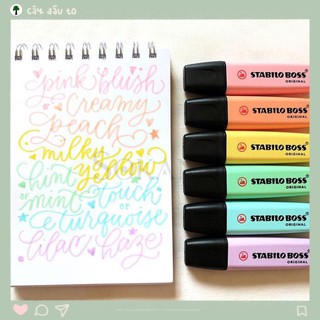 cây dấu to
pink blush
creamy
peach
milky
yellow
hint
of
mint touch
of
turquoise
lilac haze
STABILO BOSS
ORIGINAL
STABILO BOSS
ORIGINAL
STABILO BOSS
ORIGINAL
STABILO BOSS
ORIGINAL
STABILO BOSS
ORIGINAL
STABILO BOSS
ORIGINAL